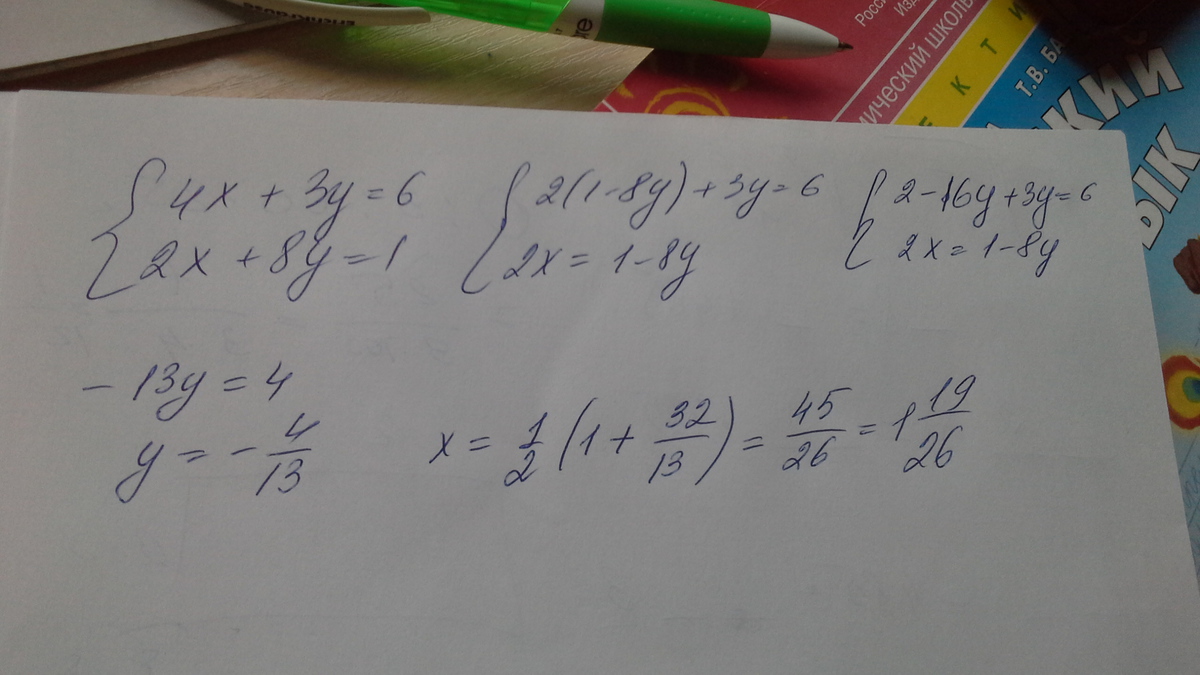 Erichkrause
Росси
Изд
мический школь
Е К Т И
Т.В. БА
КИЙ
ЫК
{4x + 3y = 6
{2x + 8y = 1
{2(1-8y) + 3y = 6
{2x = 1-8y
{2-16y+3y=6
{2x = 1-8y
-13y = 4
y = -4/13
x = 1/2 (1 + 32/13) = 45/26 = 1 19/26